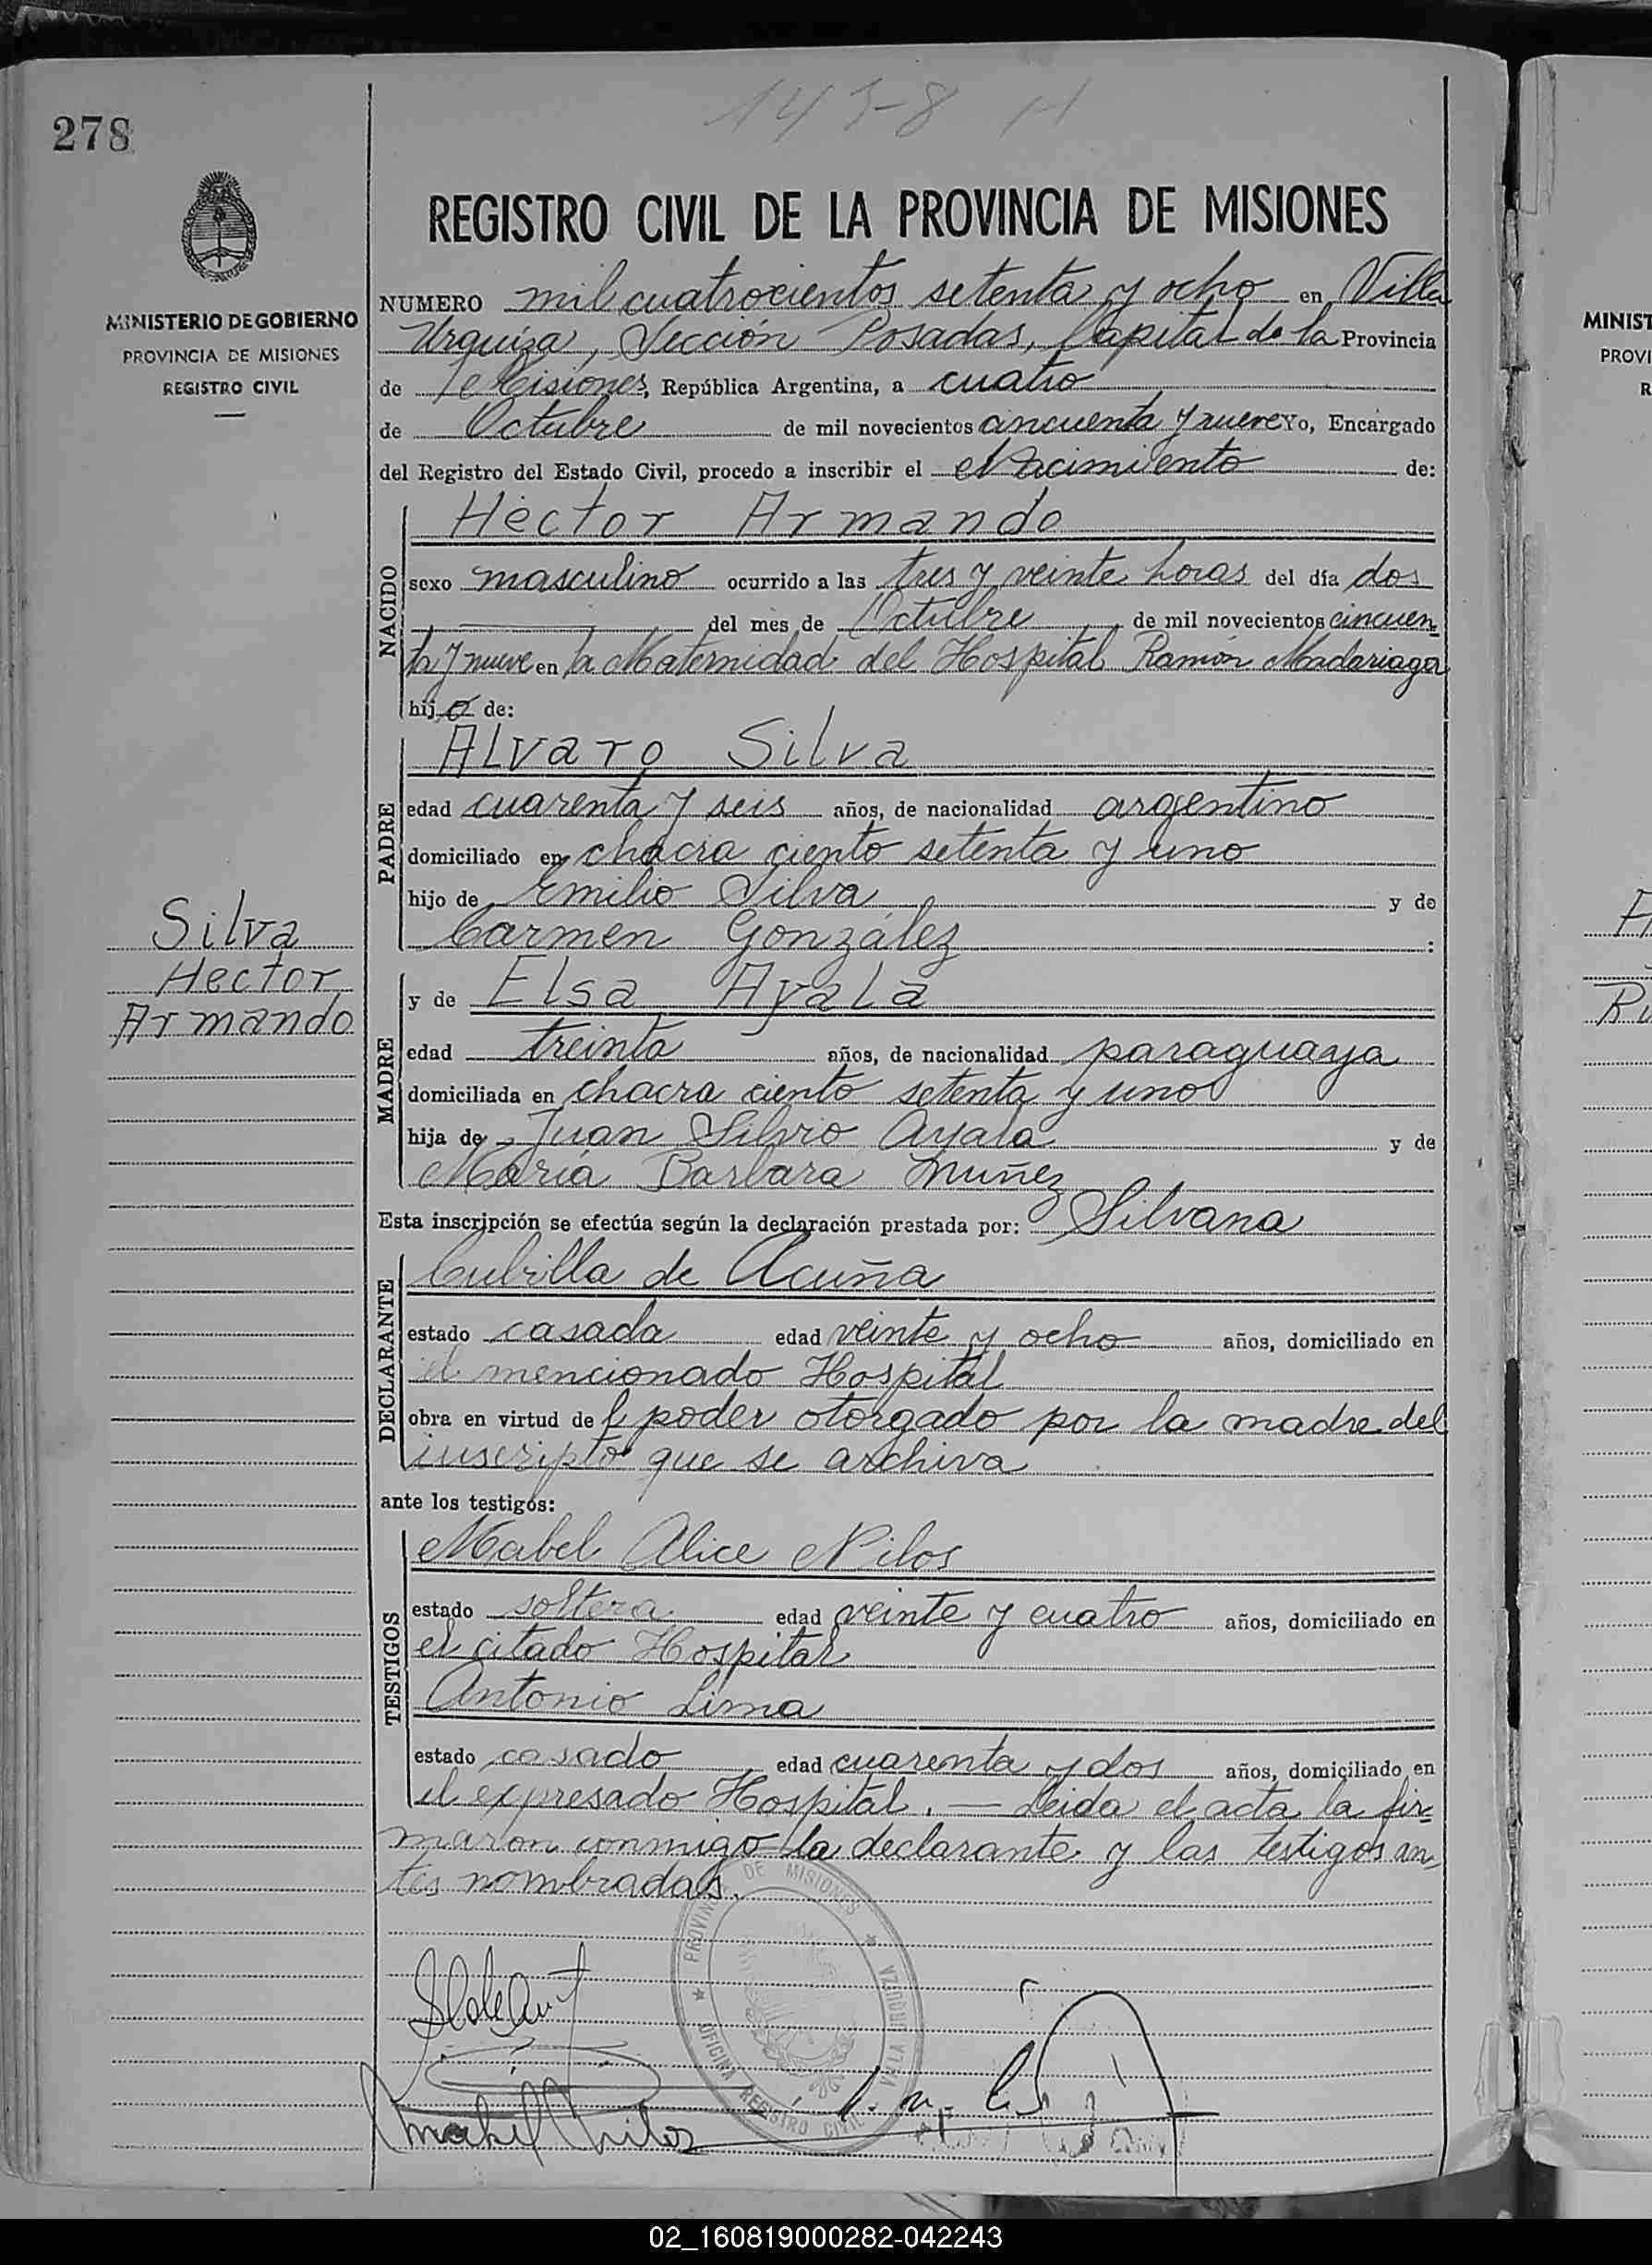 278
1478 H
REGISTRO CIVIL DE LA PROVINCIA DE MISIONES
MINISTERIO DE GOBIERNO
PROVINCIA DE MISIONES
REGISTRO CIVIL
NUMERO mil cuatrocientos setenta y ocho en Villa
Urquiza, Sección Posadas, Capital de la Provincia
de Misiones, República Argentina, a cuatro
de Octubre de mil novecientos cincuenta y nueve Yo, Encargado
del Registro del Estado Civil, procedo a inscribir el Nacimiento de:
NACIDO
Héctor Armando
sexo masculino ocurrido a las tres y veinte horas del día dos
del mes de Octubre de mil novecientos cincuen-
ta y nueve en la Maternidad del Hospital Ramón Madariaga
hijo de:
PADRE
Alvaro Silva
edad cuarenta y seis años, de nacionalidad argentino
domiciliado en chacra ciento setenta y uno
hijo de Emilio Silva y de
Carmen González :
Silva
Hector
Armando
MADRE
y de Elsa Ayala
edad treinta años, de nacionalidad paraguaya
domiciliada en chacra ciento setenta y uno
hija de Juan Silvio Ayala y de
María Barbara Nuñez
Esta inscripción se efectúa según la declaración prestada por: Silvana
DECLARANTE
Cubilla de Acuña
estado casada edad veinte y ocho años, domiciliado en
el mencionado Hospital
obra en virtud del poder otorgado por la madre del
inscripto que se archiva
ante los testigos:
TESTIGOS
Mabel Alice Nilos
estado soltera edad veinte y cuatro años, domiciliado en
el citado Hospital
Antonio Lima
estado casado edad cuarenta y dos años, domiciliado en
el expresado Hospital. — Leida el acta la fir-
maron conmigo la declarante y las testigos an-
tes nombradas.
PROVINCIA DE MISIONES
OFICINA REGISTRO CIVIL VILLA URQUIZA
Mabel Nilos
MINIST
PROVI
R
02_160819000282-042243